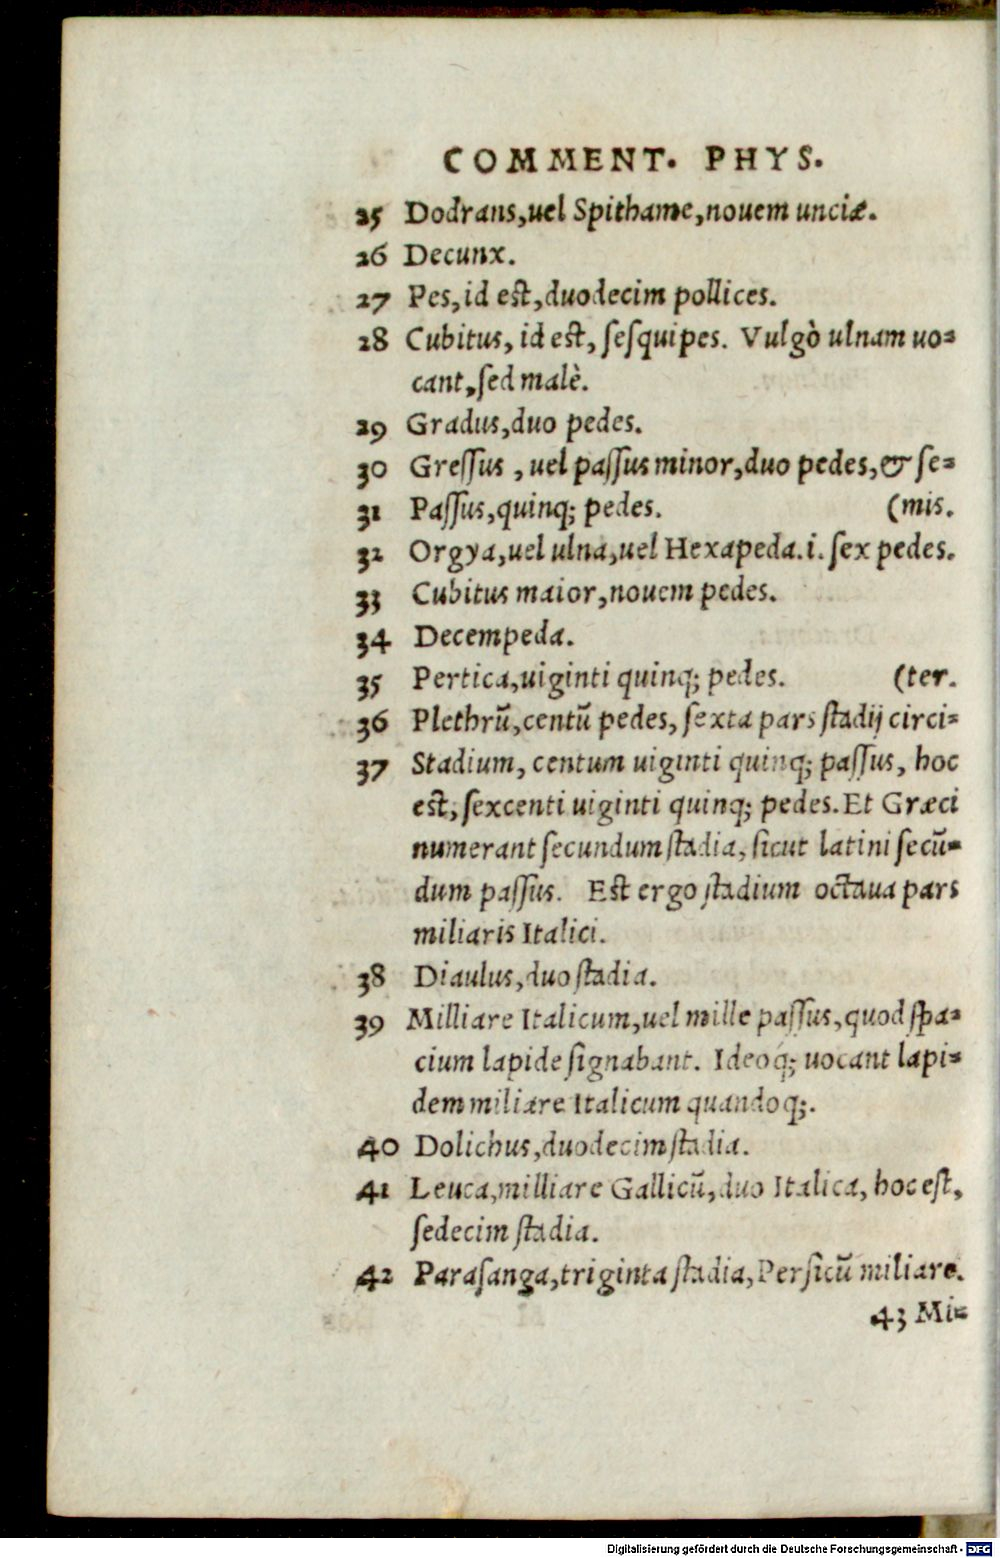 COMMENT. PHYS.
25 Dodrans,uel Spithame,nouem unciæ.
26 Decunx.
27 Pes,id est,duodecim pollices.
28 Cubitus, id est, sesquipes. Vulgò ulnam uo=
cant,sed malè.
29 Gradus,duo pedes.
30 Gressus , uel passus minor,duo pedes,& se=
31 Passus,quinq; pedes. (mis.
32 Orgya,uel ulna,uel Hexapeda.i. sex pedes.
33 Cubitus maior,nouem pedes.
34 Decempeda.
35 Pertica,uiginti quinq; pedes. (ter.
36 Plethrū,centū pedes, sexta pars stadij circi=
37 Stadium, centum uiginti quinq; passus, hoc
est, sexcenti uiginti quinq; pedes. Et Græci
numerant secundum stadia, sicut latini secū=
dum passus. Est ergo stadium octaua pars
miliaris Italici.
38 Diaulus,duo stadia.
39 Milliare Italicum,uel mille passus,quod spa=
cium lapide signabant. Ideoq́; uocant lapi=
dem miliare Italicum quandoq;.
40 Dolichus,duodecim stadia.
41 Leuca,milliare Gallicū,duo Italica, hoc est,
sedecim stadia.
42 Parasanga,triginta stadia,Persicū miliare.
43 Mi=
Digitalisierung gefördert durch die Deutsche Forschungsgemeinschaft - DFG